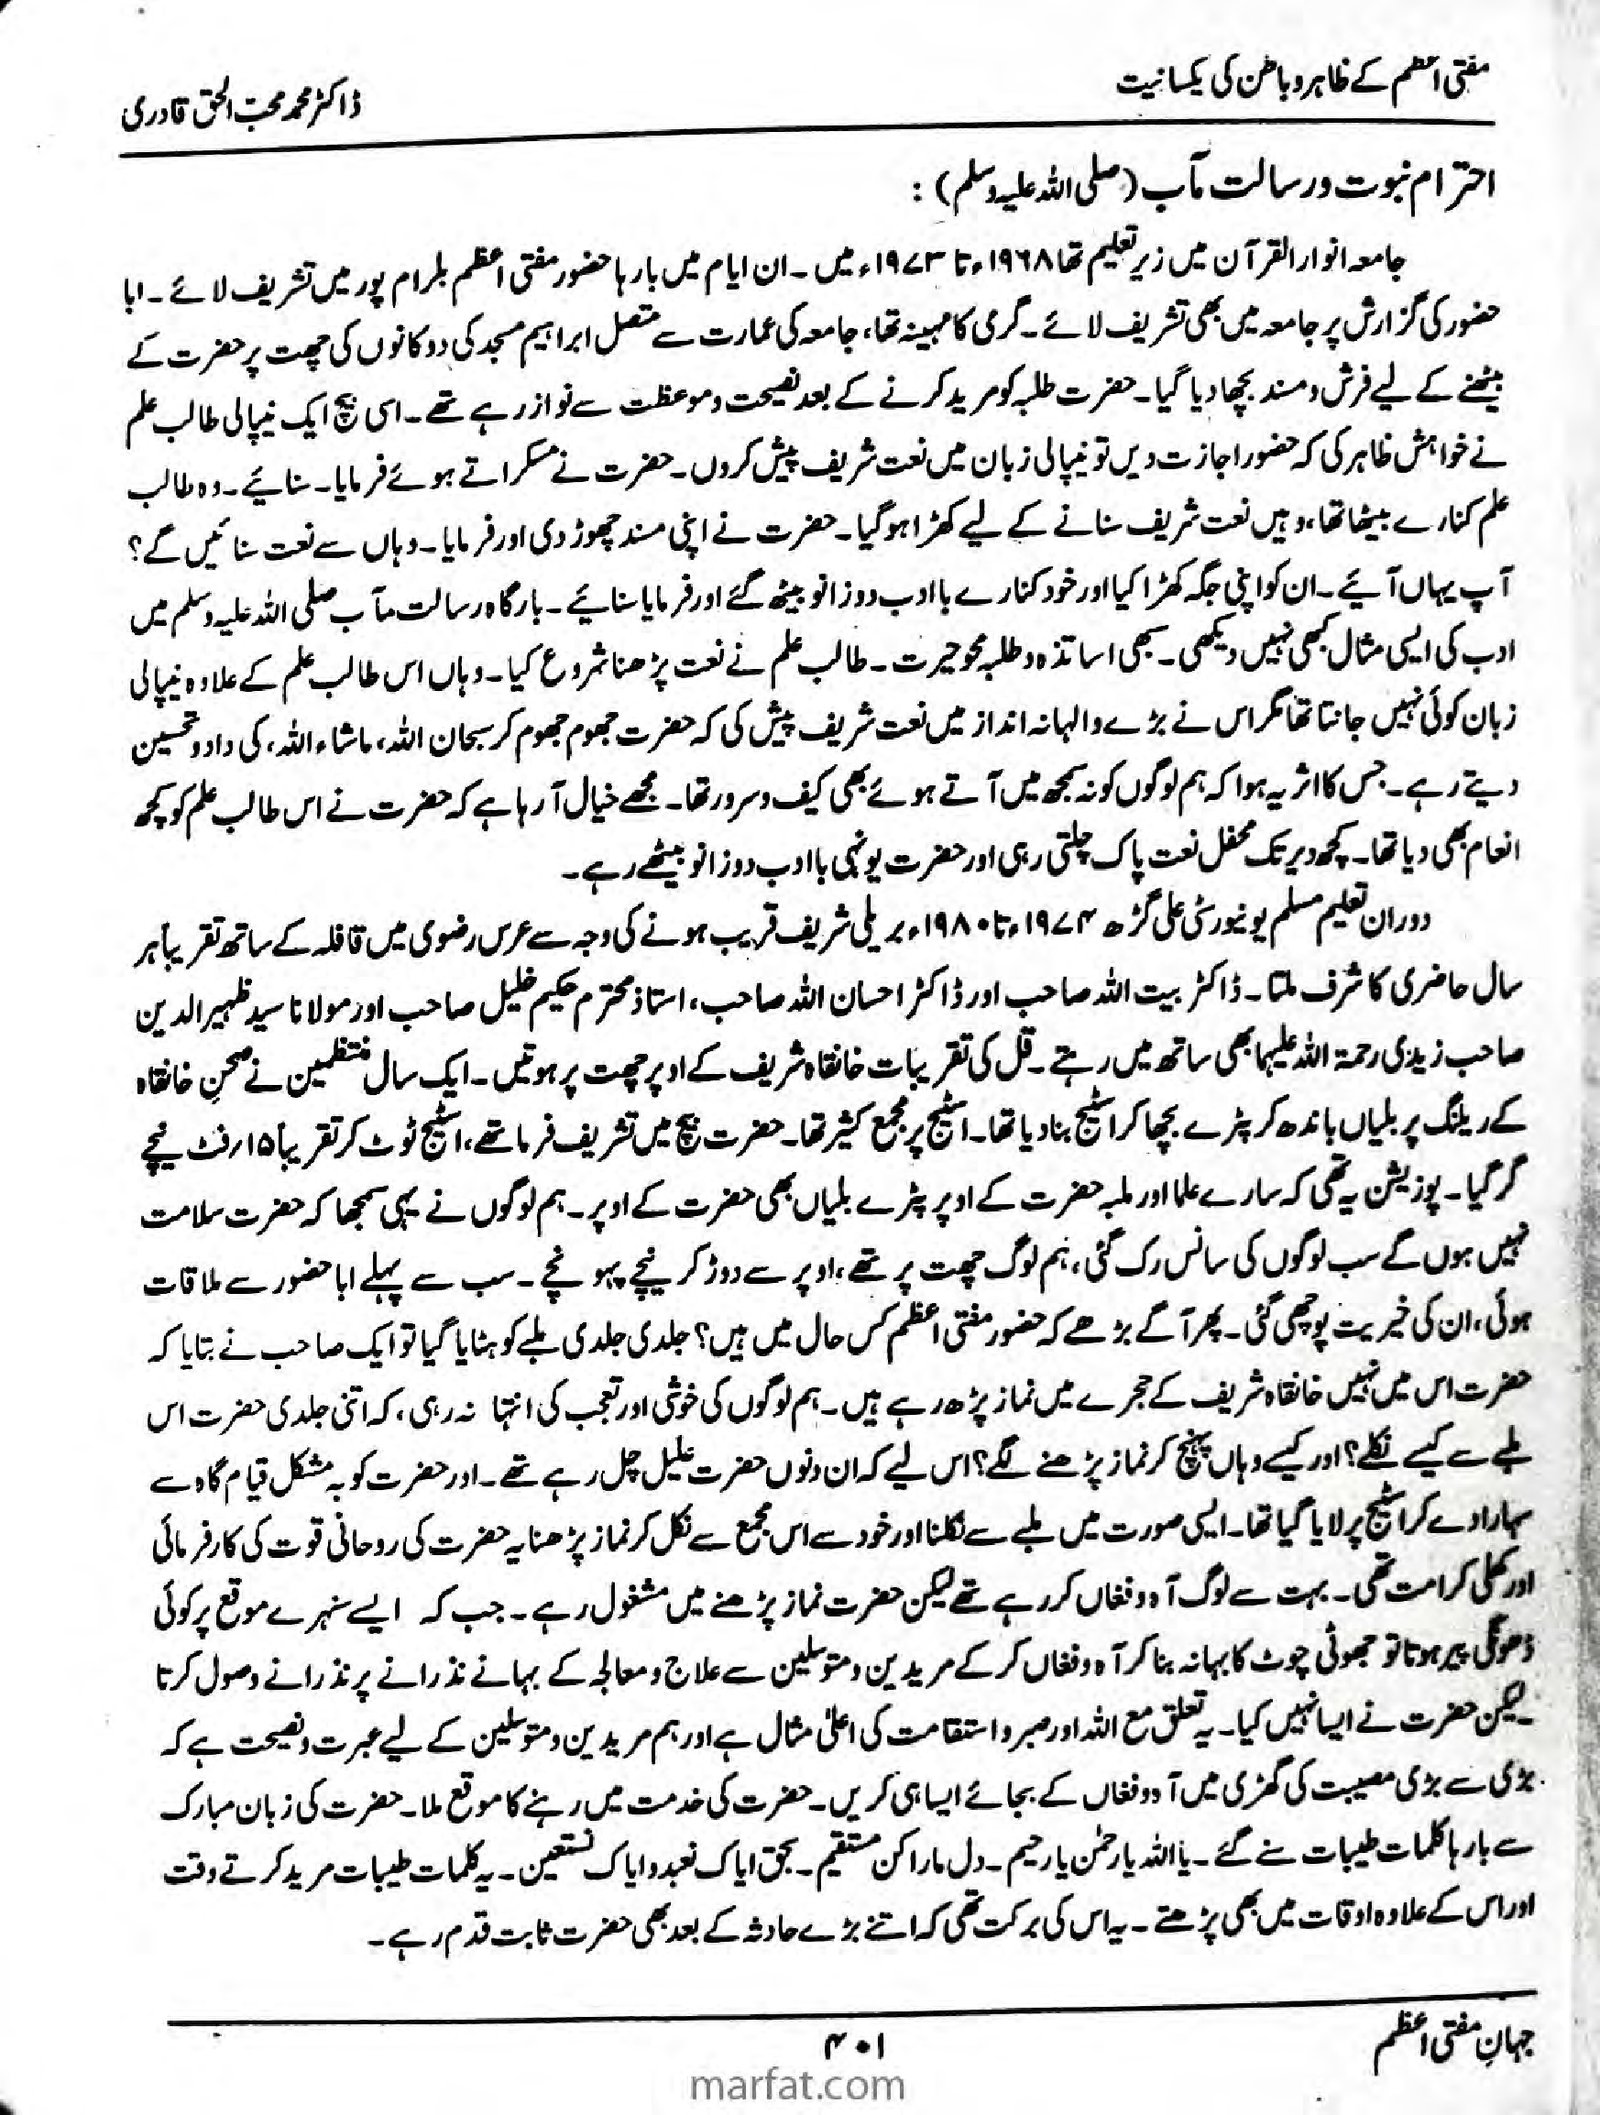 مفتی اعظم کے ظاہر و باطن کی یکسانیت
ڈاکٹر محمد محبّ الحق قادری
احترام نبوت و رسالت مآب (صلی اللہ علیہ وسلم) :
جامعہ انوار القرآن میں زیر تعلیم تھا ۱۹۶۸ء تا ۱۹۷۳ء میں۔ ان ایام میں بارہا حضور مفتی اعظم بلرام پور میں تشریف لائے۔ ابا
حضور کی گزارش پر جامعہ میں بھی تشریف لائے۔ گرمی کا مہینہ تھا، جامعہ کی عمارت سے متصل ابراہیم مسجد کی دوکانوں کی چھت پر حضرت کے
بیٹھنے کے لیے فرش و مسند بچھا دیا گیا۔ حضرت طلبہ کو مرید کرنے کے بعد نصیحت و موعظت سے نواز رہے تھے۔ اسی بیچ ایک نیپالی طالب علم
نے خواہش ظاہر کی کہ حضور اجازت دیں تو نیپالی زبان میں نعت شریف پیش کروں۔ حضرت نے مسکراتے ہوئے فرمایا۔ سنائیے۔ وہ طالب
علم کنارے بیٹھا تھا، وہیں نعت شریف سنانے کے لیے کھڑا ہو گیا۔ حضرت نے اپنی مسند چھوڑ دی اور فرمایا۔ وہاں سے نعت سنائیں گے؟
آپ یہاں آئیے۔ ان کو اپنی جگہ کھڑا کیا اور خود کنارے با ادب دو زانو بیٹھ گئے اور فرمایا سنائیے۔ بارگاہ رسالت مآب صلی اللہ علیہ وسلم میں
ادب کی ایسی مثال کبھی نہیں دیکھی۔ سبھی اساتذہ و طلبہ محو حیرت۔ طالب علم نے نعت پڑھنا شروع کیا۔ وہاں اس طالب علم کے علاوہ نیپالی
زبان کوئی نہیں جانتا تھا مگر اس نے بڑے والہانہ انداز میں نعت شریف پیش کی کہ حضرت جھوم جھوم کر سبحان اللہ، ماشاء اللہ، کی داد و تحسین
دیتے رہے۔ جس کا اثر یہ ہوا کہ ہم لوگوں کو نہ سمجھ میں آتے ہوئے بھی کیف و سرور تھا۔ مجھے خیال آ رہا ہے کہ حضرت نے اس طالب علم کو کچھ
انعام بھی دیا تھا۔ کچھ دیر تک محفل نعت پاک چلتی رہی اور حضرت یونہی با ادب دو زانو بیٹھے رہے۔
دوران تعلیم مسلم یونیورسٹی علی گڑھ ۱۹۷۴ء تا ۱۹۸۰ء بریلی شریف قریب ہونے کی وجہ سے عرس رضوی میں قافلہ کے ساتھ تقریباً ہر
سال حاضری کا شرف ملتا۔ ڈاکٹر بیت اللہ صاحب اور ڈاکٹر احسان اللہ صاحب، استاذ محترم حکیم خلیل صاحب اور مولانا سید ظہیر الدین
صاحب زیدی رحمۃ اللہ علیہما بھی ساتھ میں رہتے۔ قل کی تقریبات خانقاہ شریف کے اوپر چھت پر ہوتیں۔ ایک سال منتظمین نے صحنِ خانقاہ
کے ریلنگ پر بلیاں باندھ کر پٹرے بچھا کر اسٹیج بنا دیا تھا۔ اسٹیج پر مجمع کثیر تھا۔ حضرت بیچ میں تشریف فرما تھے، اسٹیج ٹوٹ کر تقریباً ۱۵؍فٹ نیچے
گر گیا۔ پوزیشن یہ تھی کہ سارے علما اور ملبہ حضرت کے اوپر پٹرے بلیاں بھی حضرت کے اوپر۔ ہم لوگوں نے یہی سمجھا کہ حضرت سلامت
نہیں ہوں گے سب لوگوں کی سانس رک گئی، ہم لوگ چھت پر تھے، اوپر سے دوڑ کر نیچے پہونچے۔ سب سے پہلے ابا حضور سے ملاقات
ہوئی، ان کی خیریت پوچھی گئی۔ پھر آگے بڑھے کہ حضور مفتی اعظم کس حال میں ہیں؟ جلدی جلدی ملبے کو ہٹایا گیا تو ایک صاحب نے بتایا کہ
حضرت اس میں نہیں خانقاہ شریف کے حجرے میں نماز پڑھ رہے ہیں۔ ہم لوگوں کی خوشی اور تعجب کی انتہا نہ رہی، کہ اتنی جلدی حضرت اس
ملبے سے کیسے نکلے؟ اور کیسے وہاں پہنچ کر نماز پڑھنے لگے؟ اس لیے کہ ان دنوں حضرت علیل چل رہے تھے۔ اور حضرت کو بہ مشکل قیام گاہ سے
سہارا دے کر اسٹیج پر لایا گیا تھا۔ ایسی صورت میں ملبے سے نکلنا اور خود سے اس مجمع سے نکل کر نماز پڑھنا یہ حضرت کی روحانی قوت کی کارفرمائی
اور کھلی کرامت تھی۔ بہت سے لوگ آہ و فغاں کر رہے تھے لیکن حضرت نماز پڑھنے میں مشغول رہے۔ جب کہ ایسے سنہرے موقع پر کوئی
ڈھونگی پیر ہوتا تو جھوٹی چوٹ کا بہانہ بنا کر آہ و فغاں کر کے مریدین و متوسلین سے علاج و معالجہ کے بہانے نذرانے پر نذرانے وصول کرتا
لیکن حضرت نے ایسا نہیں کیا۔ یہ تعلق مع اللہ اور صبر و استقامت کی اعلیٰ مثال ہے اور ہم مریدین و متوسلین کے لیے عبرت و نصیحت ہے کہ
بڑی سے بڑی مصیبت کی گھڑی میں آہ و فغاں کے بجائے ایسا ہی کریں۔ حضرت کی خدمت میں رہنے کا موقع ملا۔ حضرت کی زبان مبارک
سے بارہا کلمات طیبات سنے گئے۔ یا اللہ یا رحمٰن یا رحیم۔ دل ما را کن مستقیم۔ بحق ایاک نعبد و ایاک نستعین۔ یہ کلمات طیبات مرید کرتے وقت
اور اس کے علاوہ اوقات میں بھی پڑھتے۔ یہ اس کی برکت تھی کہ اتنے بڑے حادثہ کے بعد بھی حضرت ثابت قدم رہے۔
جہانِ مفتی اعظم
۴۰۱
marfat.com